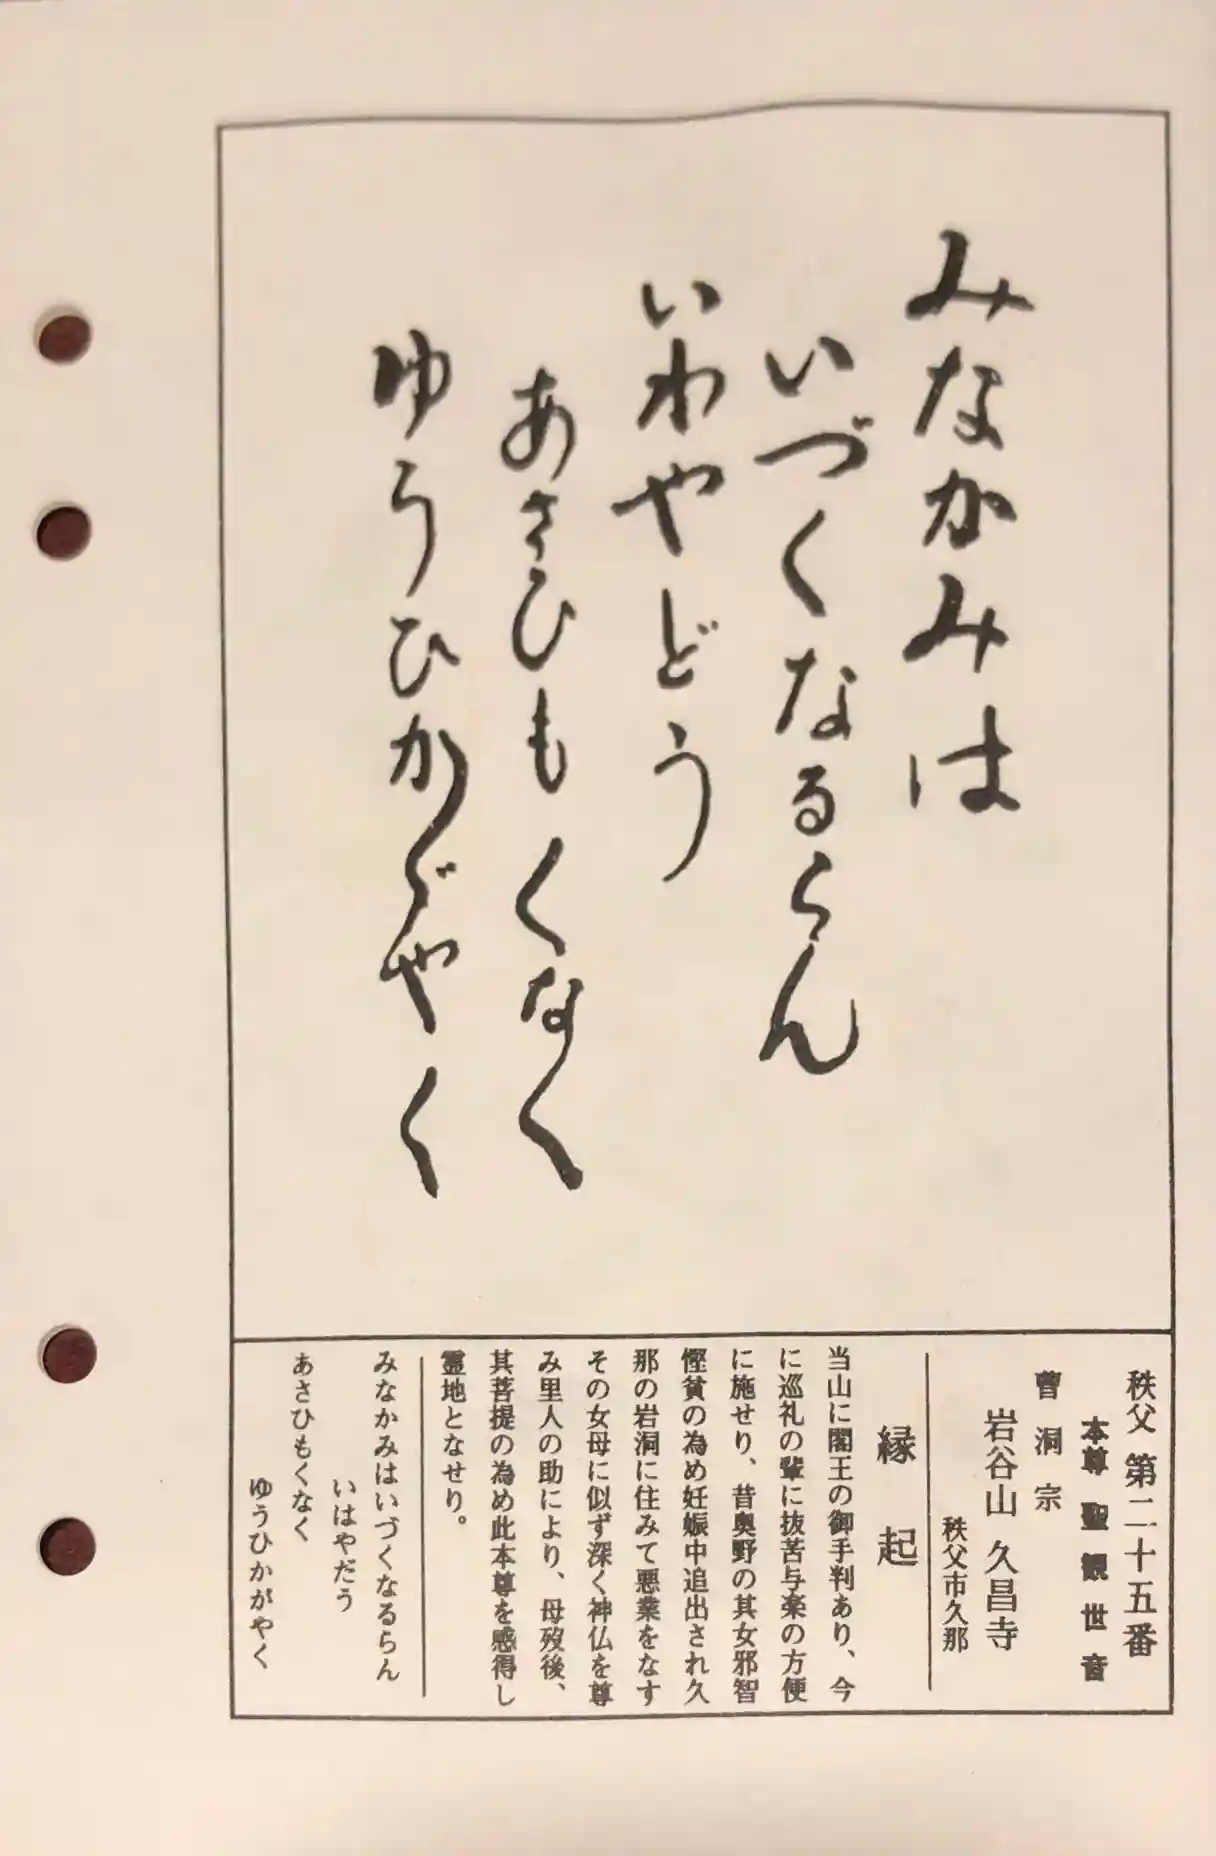 みなかみは
いづくなるらん
いわやどう
あさひもくなく
ゆうひかゞやく
秩父 第二十五番
本尊 聖観世音
曹洞宗
岩谷山 久昌寺
秩父市久那
縁起
当山に閣王の御手判あり、今
に巡礼の輩に抜苦与楽の方便
に施せり、昔奥野の其女邪智
慳貧の為め妊娠中追出され久
那の岩洞に住みて悪業をなす
その女母に似ず深く神仏を尊
み里人の助により、母歿後、
其菩提の為め此本尊を感得し
霊地となせり。
みなかみはいづくなるらん
いはやだう
あさひもくなく
ゆうひかがやく